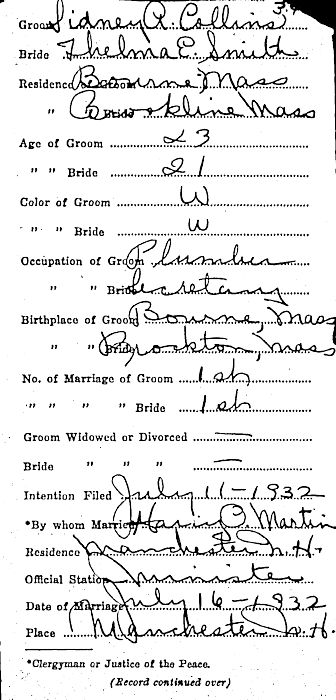 Groom Sidney A Collins
Bride Thelma C. Smith
Residence of Groom Bourne, Mass
" Bride Brookline Mass
Age of Groom 23
" " Bride 21
Color of Groom W
" " Bride W
Occupation of Groom Plumber
" " Bride Secretary
Birthplace of Groom Bourne, Mass
" " Bride Brockton, Mass
No. of Marriage of Groom 1st
" " " " Bride 1st
Groom Widowed or Divorced —
Bride " " " —
Intention Filed July 11-1932
*By whom Married O. Martin
Residence Manchester N.H.
Official Station Minister
Date of Marriage July 16-1932
Place Manchester N.H.
*Clergyman or Justice of the Peace.
(Record continued over)